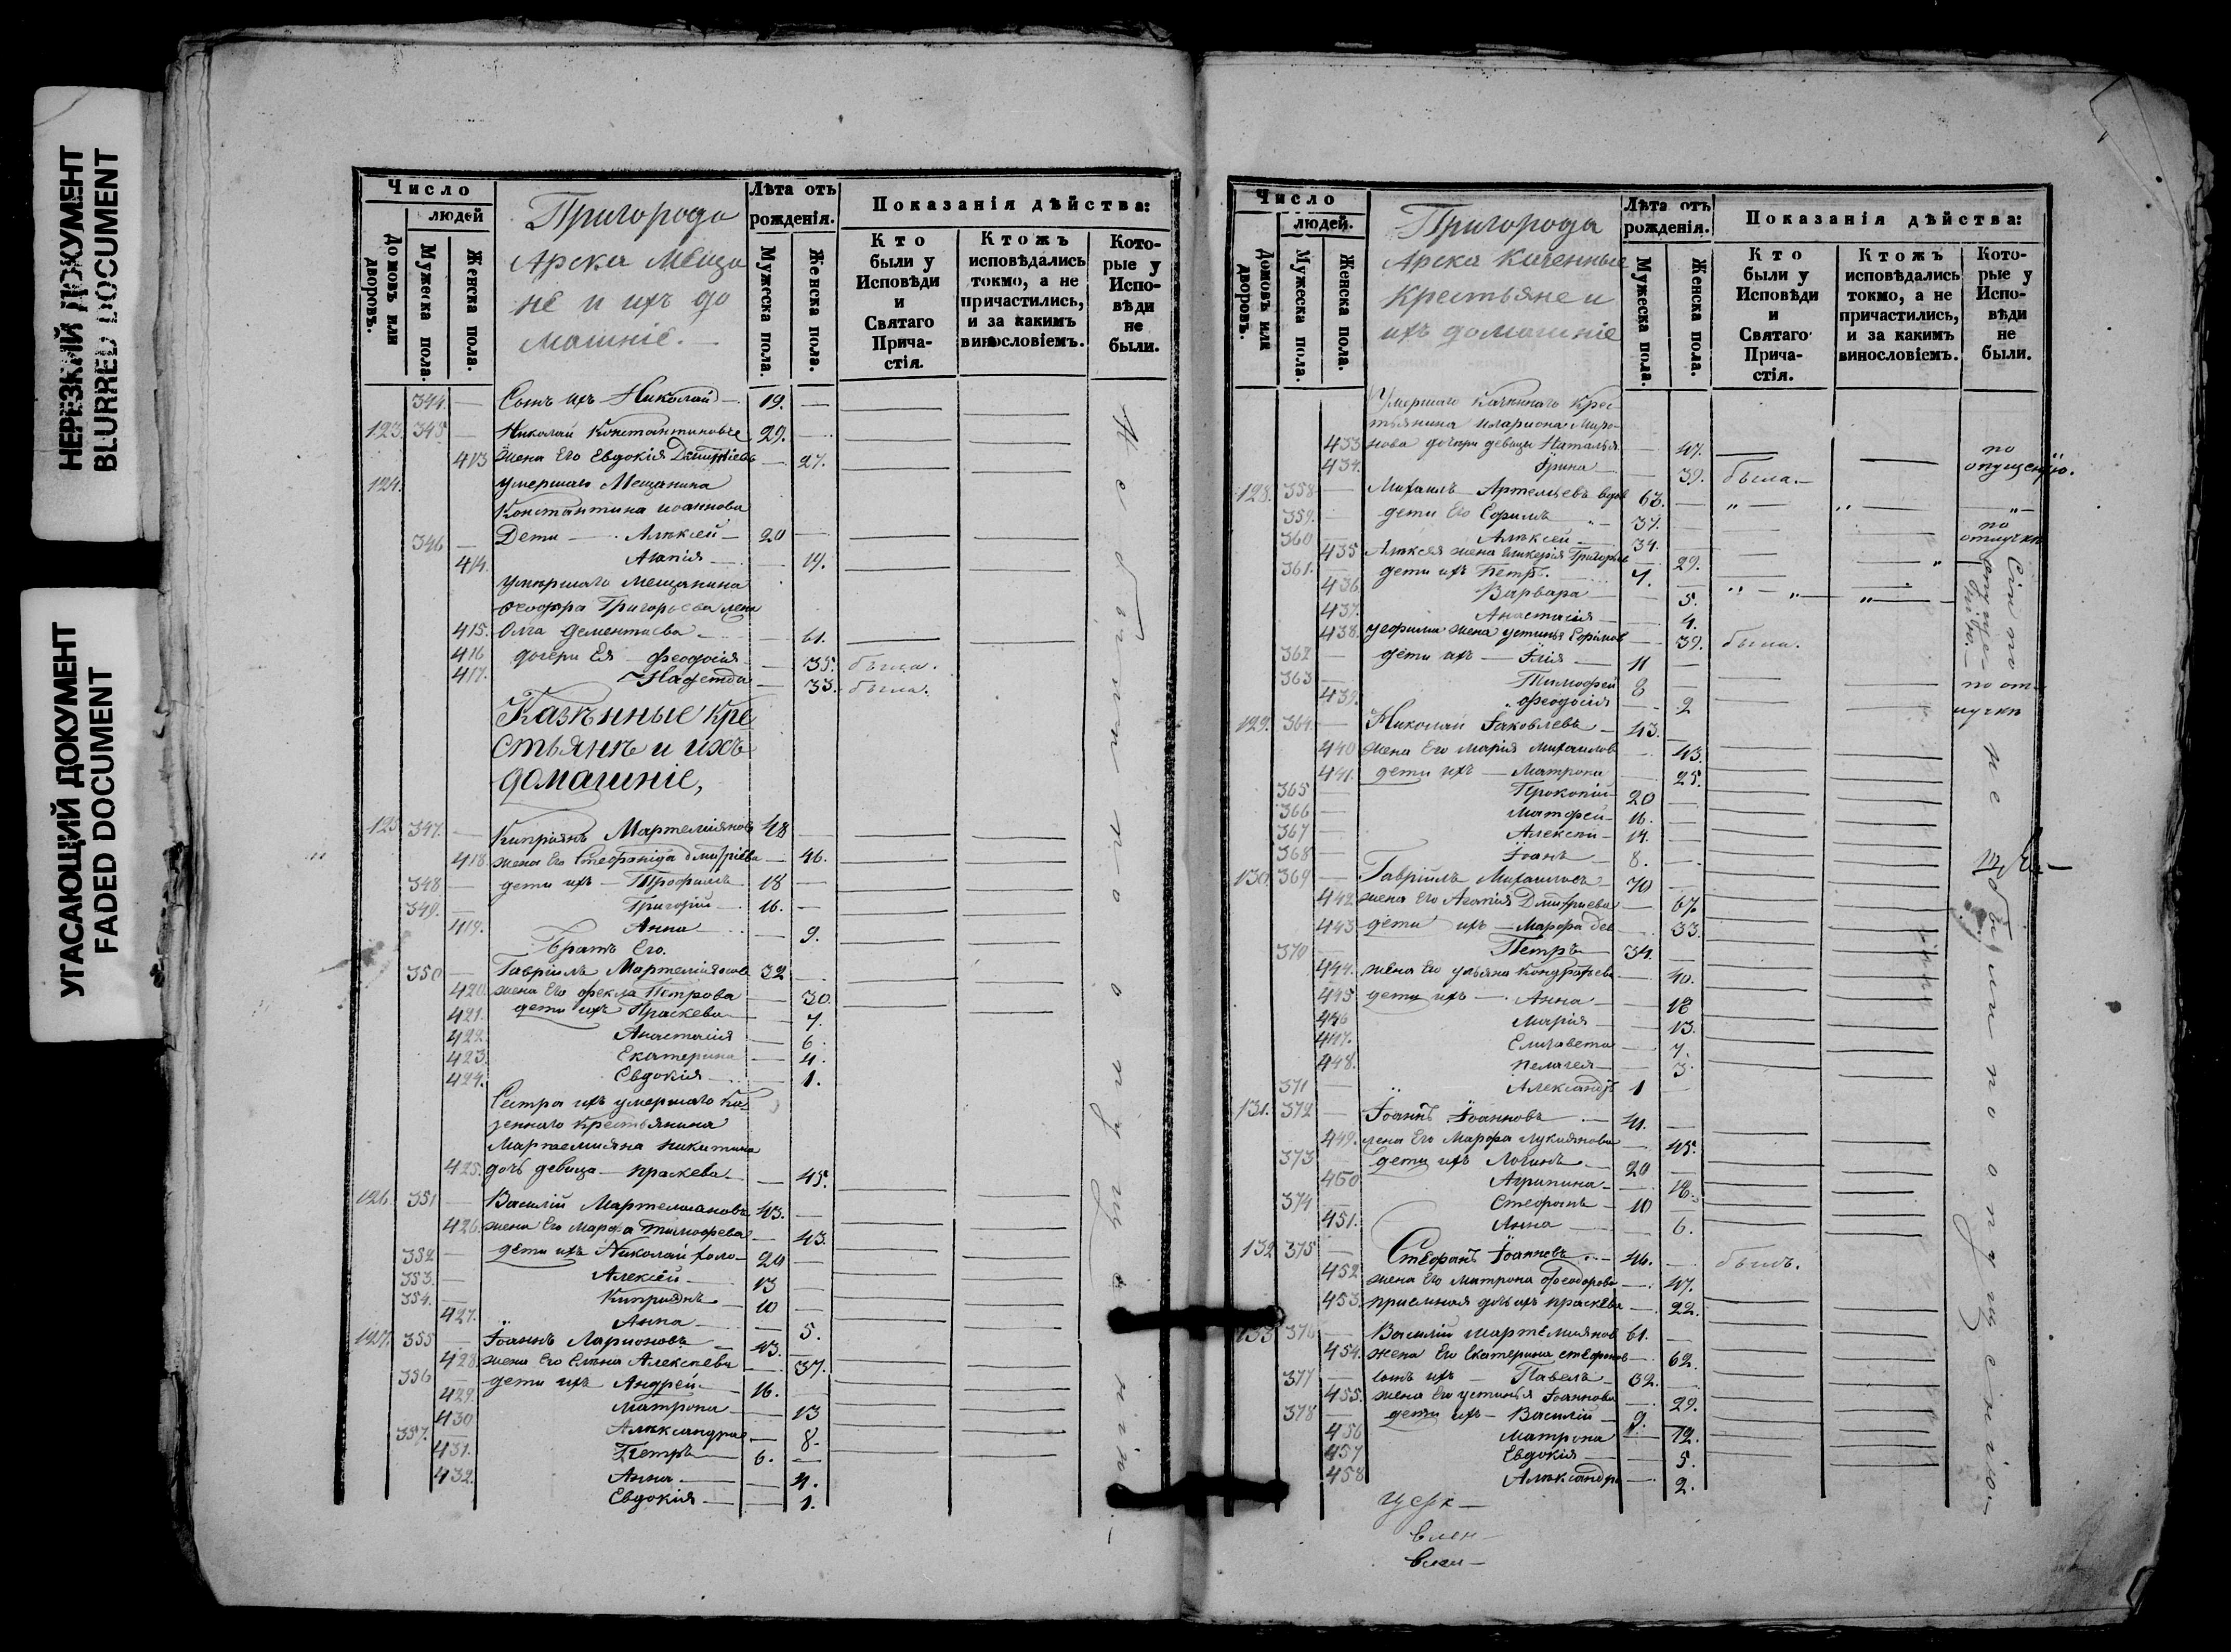 НЕРЕЗКИЙ ДОКУМЕНТ
BLURRED DOCUMENT
УГАСАЮЩИЙ ДОКУМЕНТ
FADED DOCUMENT
Число
людей
Домовъ или дворовъ.
Мужеска пола.
Женска пола.
Пригорода
Арска Меща
не и ихъ до
машніе.
Лѣта отъ рожденія.
Мужеска пола.
Женска пола.
Показанія дѣйства:
Кто были у Исповѣди и Святаго Причастія.
Ктожъ исповѣдались токмо, а не причастились, и за какимъ винословіемъ.
Которые у Исповѣди не были.
344. — Сынъ ихъ Николай — 19. —
123. 345. — Николай Константиновъ 29. —
413 жена Его Евдокія — 27.
124. умершаго Мещанина
Константина Иоаннова
346 — Дети — Алексей — 20 —
414. Агапія — 19.
умершаго мещанина
Григорьева жена
415. Олга Дементиева — 61.
416 дочери Ея — Феодосія — 35. была.
417. Надежда — 33. была.
Казенные кре
стьяне и ихъ
домашніе,
125 347. — Кипріянъ Мартеміяновъ 48 —
418. жена Его Стефанида Дмитріева — 46.
348 — дети ихъ — Трофимъ 18 —
349. — Григорій — 16. —
419. Анна — 9.
Братъ Его.
350 — Гавріилъ Мартеміяновъ 32 —
420. жена Его Фекла Петрова — 30.
421. дети ихъ Праскева — 7.
422. Анастасія — 6.
423. Екатерина — 4.
424. Евдокія — 1.
Сестра ихъ умершаго Ка
зеннаго Крестьянина
Мартемияна Никитина
425. дочь девица — Праскева — 45.
126. 351 — Василій Мартемиановъ 43. —
426. жена Его Марфа Тимофеева — 43.
352 — дети ихъ Николай холо — 20 —
353. — Алексей — 13 —
354. — Киприянъ — 10 —
427. Анна — 5.
127. 355 — Іоаннъ Ларионовъ — 43. —
428. жена Его Елена Алексеева — 37.
356 — дети ихъ Андрей — 16. —
429. Матрона — 13
430 Александра — 8.
357. — Петръ — 6. —
431. Анна — 4.
432. Евдокія — 1.
Не были по опущенію
Число
людей.
Домовъ или дворовъ.
Мужеска пола.
Женска пола.
Пригорода
Арска Казенные
Крестьяне и
ихъ домашніе
Лѣта отъ рожденія.
Мужеска пола.
Женска пола.
Показанія дѣйства:
Кто были у Исповѣди и Святаго Причастія.
Ктожъ исповѣдались токмо, а не причастились, и за какимъ винословіемъ.
Которые у Исповѣди не были.
Умершаго Казеннаго Крес
тьянина Илариона Миро
433 нова дочери девицы Наталья — 47. — по
434. Ірина — 39. была. — опущенію.
128. 358 — Михаилъ Артемьевъ вдов 63. —
359. — дети Его Ефимъ — 37. — по
360 — Алексей — 34. — отлучке
435 Алексея жена Гликерія Григорьев — 29.
361. — дети ихъ Петръ. — 7. —
436. Варвара — 5.
437. Анастасія — 4.
438. Уефима жена Устинья Ефимов — 39. была.
362 — дети ихъ — Ілія — 11 —
363 — Тимофей 8 — по от
439. Феодосія — 2 лучке
129. 364. — Николай Іаковлевъ — 43. —
440 жена Его Марія Михаилов — 43.
441. дети ихъ — Матрона — 25.
365 — Прокопій — 20 —
366 — Матфей — 16. —
367 — Алексей — 14. —
368 — Іоанъ — 8. —
130. 369 — Гавріилъ Михаиловъ — 70 —
442. жена Его Агапія Дмитриева — 67.
443 дети ихъ — Марфа дев — 33.
370 — Петръ — 34. —
444. жена Его Ульяна Кондратьева — 40.
445 дети ихъ — Анна — 18
446 Марія — 13.
447. Елизавета — 7.
448. Пелагея — 3.
371 — Александръ 1 —
131. 372 — Іоаннъ Іоанновъ — 41. —
449. жена Его Марфа Лукиянова — 45.
373 — дети ихъ Логинъ — 20 —
450 Агрипина — 18.
374 — Стефанъ — 10 —
451. Анна — 6.
132 375 — Стефанъ Іоанновъ — 46. — былъ.
452 жена Его Матрона Феодорова — 47.
453. приемная дочь ихъ Праскева — 22.
133 376 — Василій Мартемиянов 61. —
454. жена Его Екатерина Стефанов — 62.
377 — сынъ ихъ — Павелъ — 32. —
455. жена Его Устинья Іоаннова — 29.
378 — дети ихъ — Василій — 9. —
456 Матрона — 12.
457 Евдокія — 5.
458 Александра — 2.
Сіи по
опуще
нію.
не были по опущенію